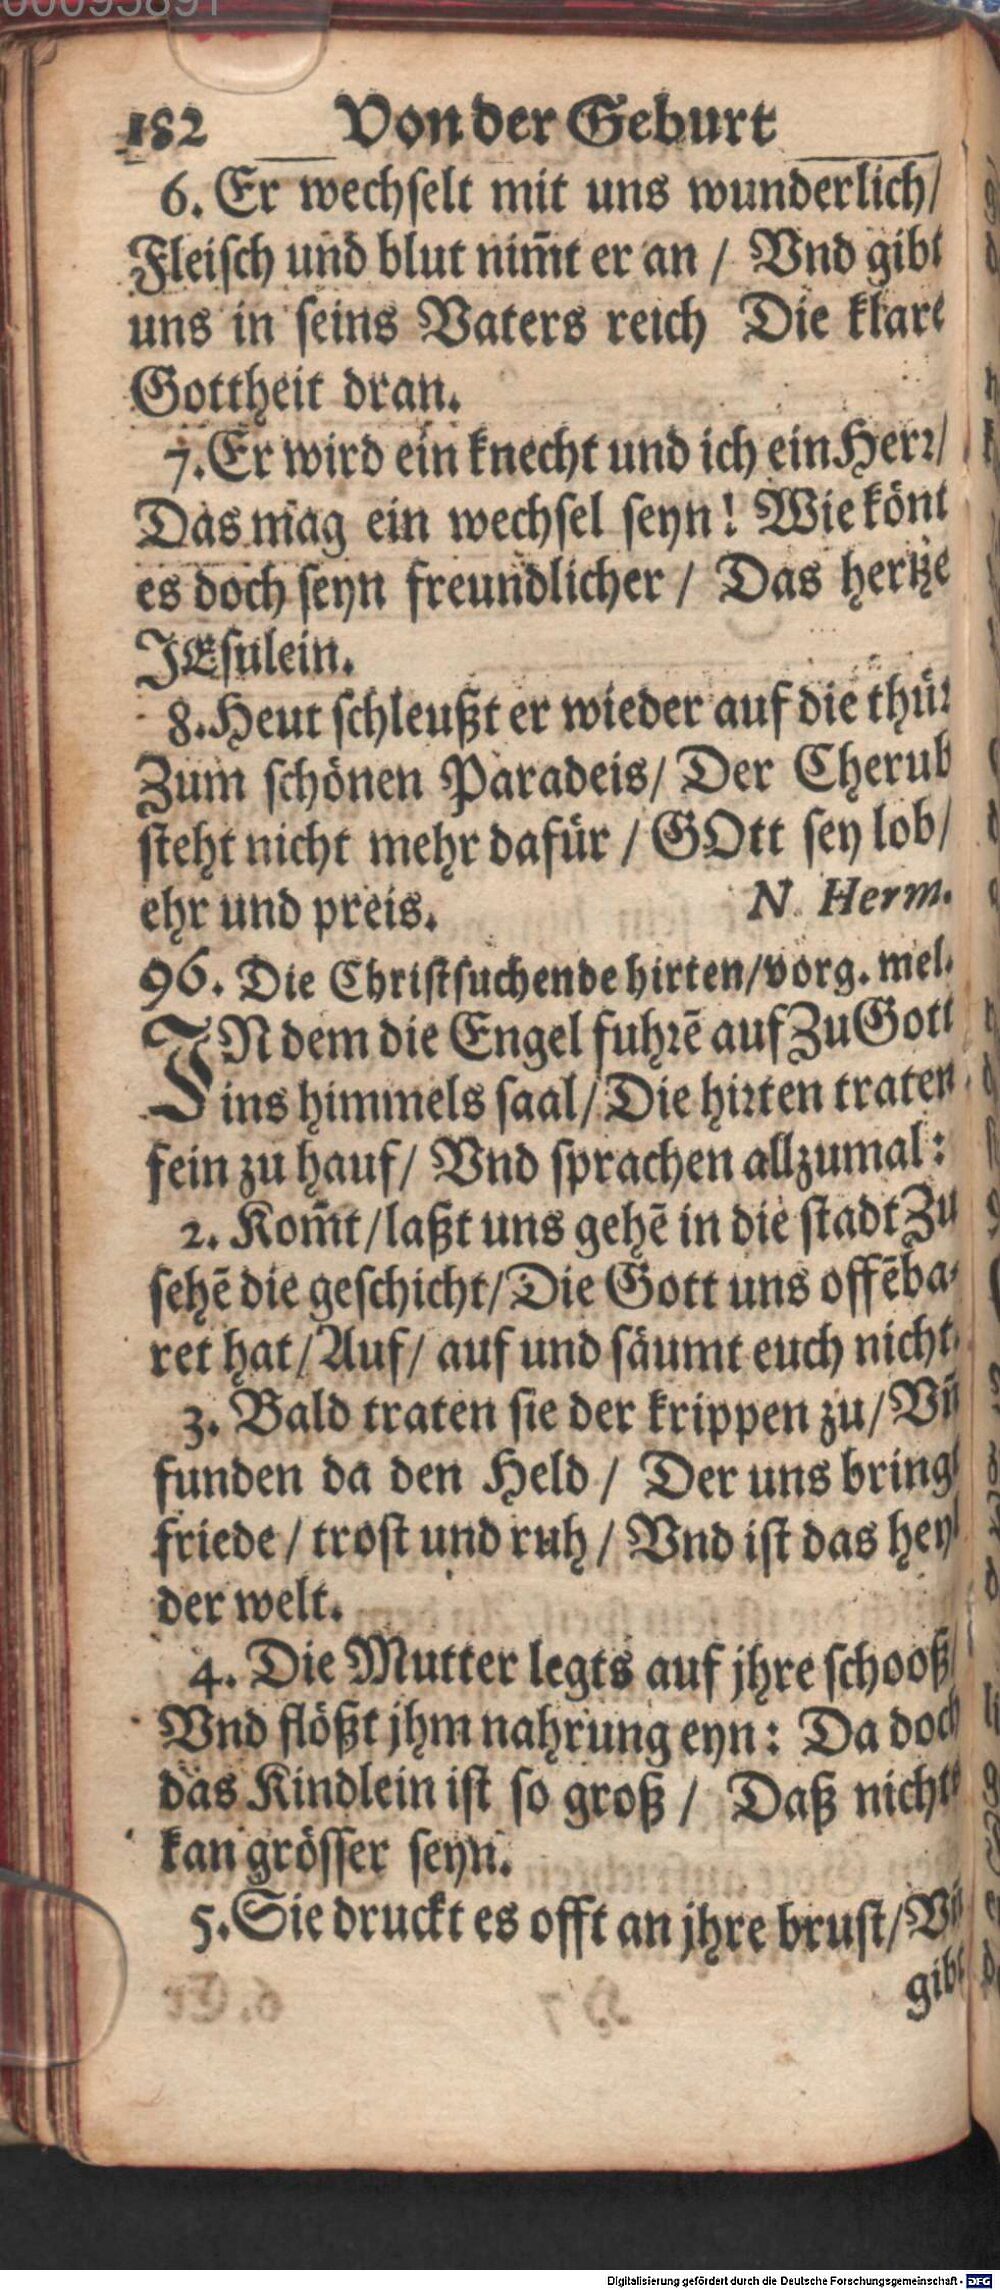 00095891
182 Von der Geburt
6. Er wechselt mit uns wunderlich/
Fleisch und blut nim̃t er an / Vnd gibt
uns in seins Vaters reich Die klare
Gottheit dran.
7. Er wird ein knecht und ich ein Herr/
Das mag ein wechsel seyn! Wie könt
es doch seyn freundlicher / Das hertze
JEsulein.
8. Heut schleußt er wieder auf die thür
Zum schönen Paradeis/ Der Cherub
steht nicht mehr dafür / GOtt sey lob/
ehr und preis. N. Herm.
96. Die Christsuchende hirten/vorg. mel.
IN dem die Engel fuhrẽ auf Zu Gott
ins himmels saal/ Die hirten traten
fein zu hauf/ Vnd sprachen allzumal:
2. Kom̃t/laßt uns gehẽ in die stadt Zu
sehẽ die geschicht/Die Gott uns offẽba-
ret hat/Auf/ auf und säumt euch nicht.
3. Bald traten sie der krippen zu/ Vñ
funden da den Held / Der uns bringt
friede / trost und ruh / Vnd ist das heyl
der welt.
4. Die Mutter legts auf jhre schooß/
Vnd flößt jhm nahrung eyn: Da doch
das Kindlein ist so groß / Daß nichts
kan grösser seyn.
5. Sie druckt es offt an jhre brust/Vñ
gibt
Digitalisierung gefördert durch die Deutsche Forschungsgemeinschaft - DFG